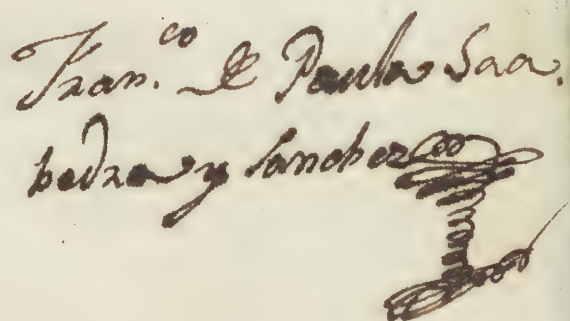 Fran.co de Paula Saa.
bedra y Sanchez